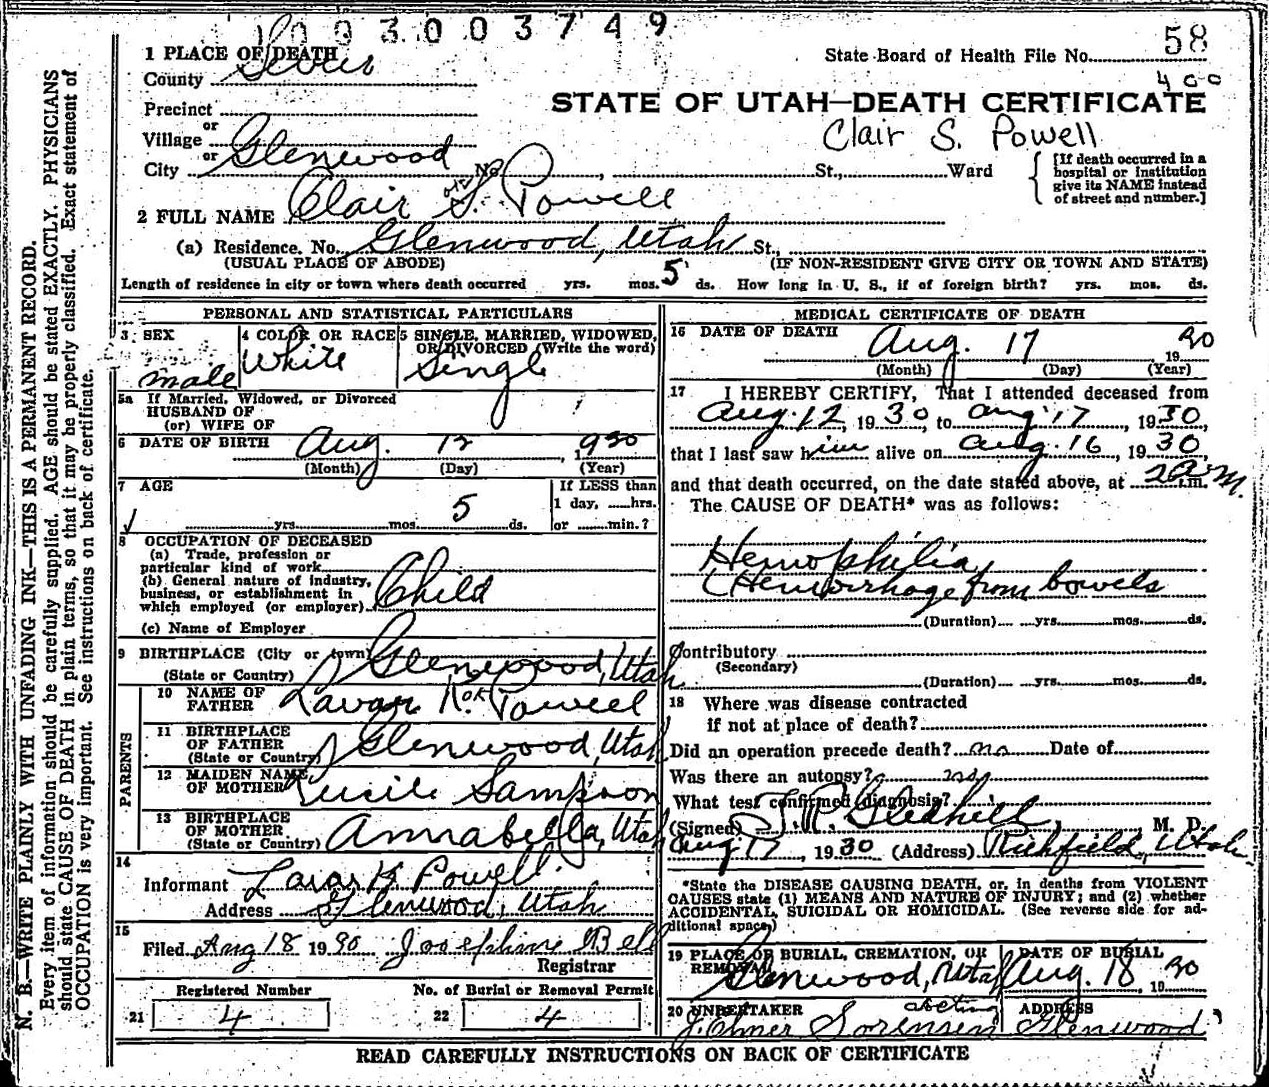 003003749
58
1 PLACE OF DEATH
State Board of Health File No.
400
County Sevier
STATE OF UTAH—DEATH CERTIFICATE
Precinct
or
Village
Clair S. Powell
or
City Glenwood No. , St., Ward
[If death occurred in a
hospital or institution
give its NAME instead
of street and number.]
2 FULL NAME Clair S. Powell
(a) Residence. No. Glenwood, Utah St.,
(USUAL PLACE OF ABODE) (IF NON-RESIDENT GIVE CITY OR TOWN AND STATE)
Length of residence in city or town where death occurred yrs. mos. 5 ds. How long in U. S., if of foreign birth? yrs. mos. ds.
PERSONAL AND STATISTICAL PARTICULARS
3 SEX
male
4 COLOR OR RACE
White
5 SINGLE, MARRIED, WIDOWED,
OR DIVORCED (Write the word)
Single
5a If Married, Widowed, or Divorced
HUSBAND OF
(or) WIFE OF
6 DATE OF BIRTH Aug. 12, 1930
(Month) (Day) (Year)
7 AGE
If LESS than
1 day, hrs.
or min.?
yrs. mos. 5 ds.
8 OCCUPATION OF DECEASED
(a) Trade, profession or
particular kind of work
(b) General nature of industry,
business, or establishment in
which employed (or employer) Child
(c) Name of Employer
9 BIRTHPLACE (City or town)
(State or Country) Glenwood, Utah
PARENTS
10 NAME OF
FATHER Powell
11 BIRTHPLACE
OF FATHER
(State or Country) Glenwood, Utah
12 MAIDEN NAME
OF MOTHER Lucile Sampson
13 BIRTHPLACE
OF MOTHER
(State or Country) Annabella, Utah
14
Informant Lavar K. Powell
Address Glenwood, Utah
15
Filed Aug 18 1930 Josephine Bell
Registrar
Registered Number No. of Burial or Removal Permit
21 4 22 4
MEDICAL CERTIFICATE OF DEATH
16 DATE OF DEATH
Aug. 17 1930
(Month) (Day) (Year)
17 I HEREBY CERTIFY, That I attended deceased from
Aug. 12, 1930, to Aug 17, 1930,
that I last saw him alive on Aug. 16, 1930
and that death occurred, on the date stated above, at 2 a.m.
The CAUSE OF DEATH* was as follows:
Hemophilia
(Hemorrhage from bowels
(Duration) yrs. mos. ds.
Contributory
(Secondary)
(Duration) yrs. mos. ds.
18 Where was disease contracted
if not at place of death?
Did an operation precede death? no Date of
Was there an autopsy? no
What test confirmed diagnosis?
(Signed) J. R. Gledhill, M. D.
Aug 17, 1930 (Address) Richfield, Utah
*State the DISEASE CAUSING DEATH, or, in deaths from VIOLENT
CAUSES state (1) MEANS AND NATURE OF INJURY; and (2) whether
ACCIDENTAL, SUICIDAL OR HOMICIDAL. (See reverse side for ad-
ditional space)
19 PLACE OF BURIAL, CREMATION, OR
REMOVAL
Glenwood, Utah
DATE OF BURIAL
Aug. 18, 1930
20 UNDERTAKER acting
J. Elmer Sorensen
ADDRESS
Glenwood
READ CAREFULLY INSTRUCTIONS ON BACK OF CERTIFICATE
N. B.—WRITE PLAINLY WITH UNFADING INK—THIS IS A PERMANENT RECORD.
Every item of information should be carefully supplied. AGE should be stated EXACTLY. PHYSICIANS
should state CAUSE OF DEATH in plain terms, so that it may be properly classified. Exact statement of
OCCUPATION is very important. See instructions on back of certificate.